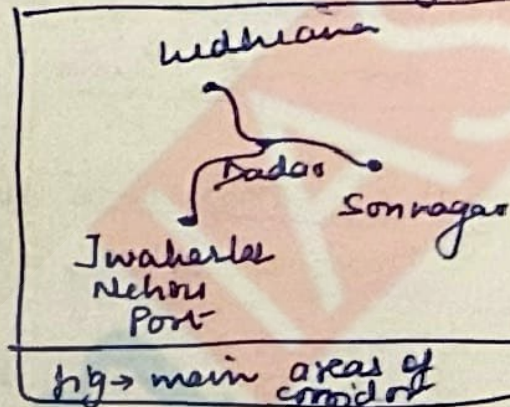 Ludhiana
Dadar
Sonnagar
Jwaharlal
Nehru
Port
fig → main areas of
corridor